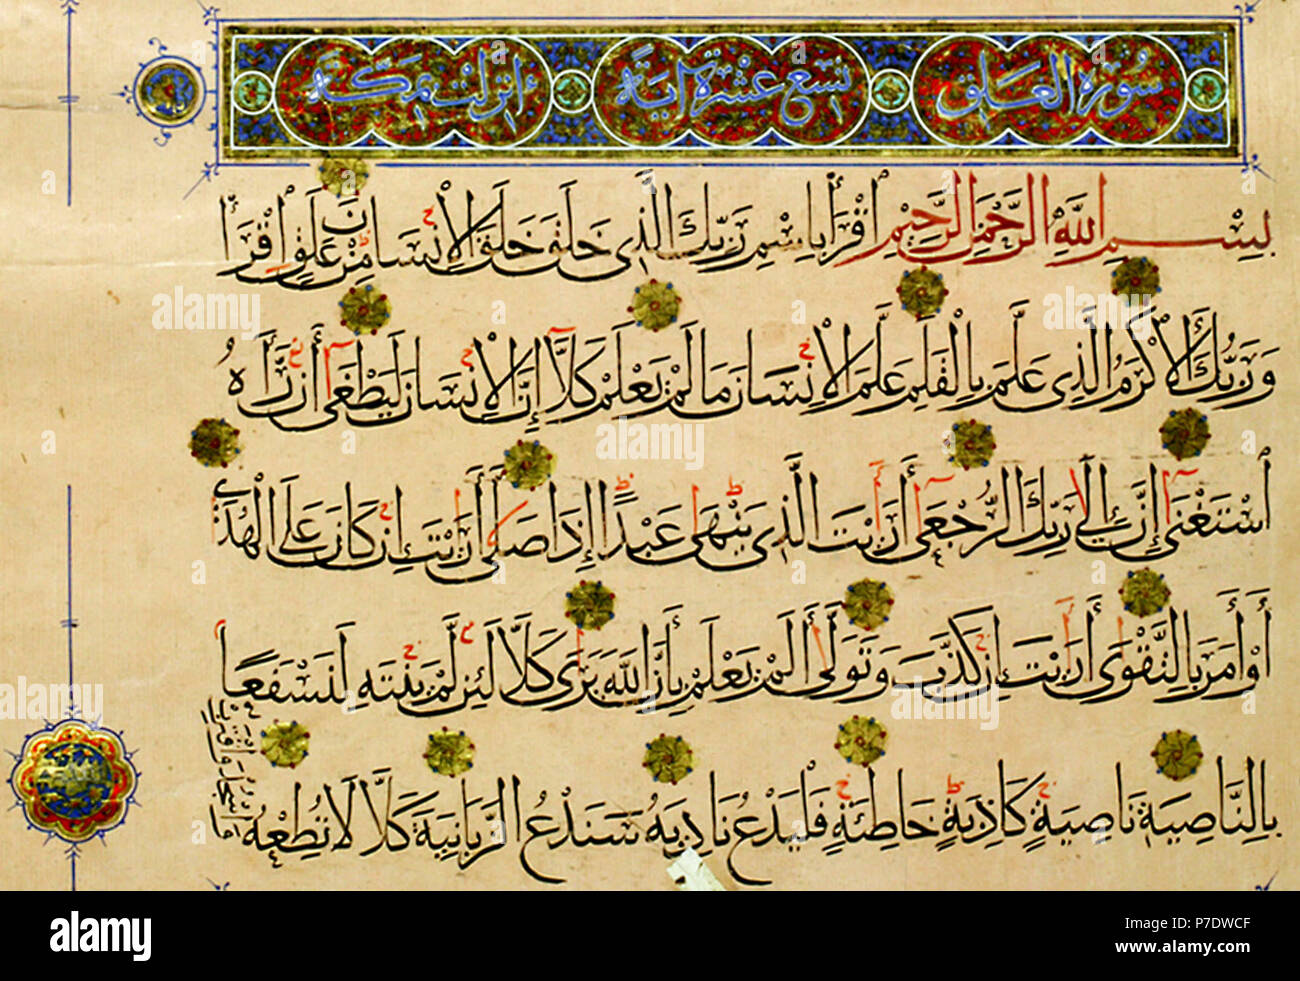 سورة العلق تسع عشرة آية أنزلت بمكة
بِسْمِ اللَّهِ الرَّحْمَٰنِ الرَّحِيمِ اقْرَأْ بِاسْمِ رَبِّكَ الَّذِي خَلَقَ خَلَقَ الْإِنسَانَ مِنْ عَلَقٍ اقْرَأْ
وَرَبُّكَ الْأَكْرَمُ الَّذِي عَلَّمَ بِالْقَلَمِ عَلَّمَ الْإِنسَانَ مَا لَمْ يَعْلَمْ كَلَّا إِنَّ الْإِنسَانَ لَيَطْغَى أَن رَّآهُ
اسْتَغْنَى إِنَّ إِلَى رَبِّكَ الرُّجْعَى أَرَأَيْتَ الَّذِي يَنْهَى عَبْدًا إِذَا صَلَّى أَرَأَيْتَ إِن كَانَ عَلَى الْهُدَى
أَوْ أَمَرَ بِالتَّقْوَى أَرَأَيْتَ إِن كَذَّبَ وَتَوَلَّى أَلَمْ يَعْلَمْ بِأَنَّ اللَّهَ يَرَى كَلَّا لَئِن لَّمْ يَنتَهِ لَنَسْفَعًا
بِالنَّاصِيَةِ نَاصِيَةٍ كَاذِبَةٍ خَاطِئَةٍ فَلْيَدْعُ نَادِيَهُ سَنَدْعُ الزَّبَانِيَةَ كَلَّا لَا تُطِعْهُ
وَاسْجُدْ وَاقْتَرِب
alamy
a
alamy stock photo
P7DWCF
www.alamy.com